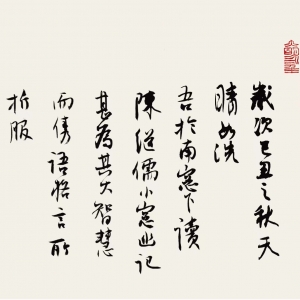 歲次己丑之秋天
晴如洗
吾於南窓下讀
陳继儒小窓幽记
甚為其大智慧
而隽語悟言所
折服